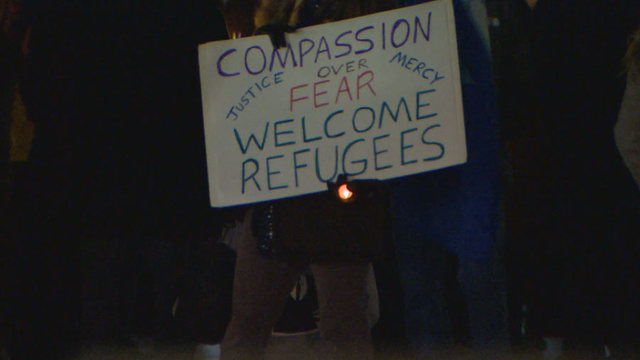 COMPASSION
JUSTICE OVER MERCY
FEAR
WELCOME
REFUGEES